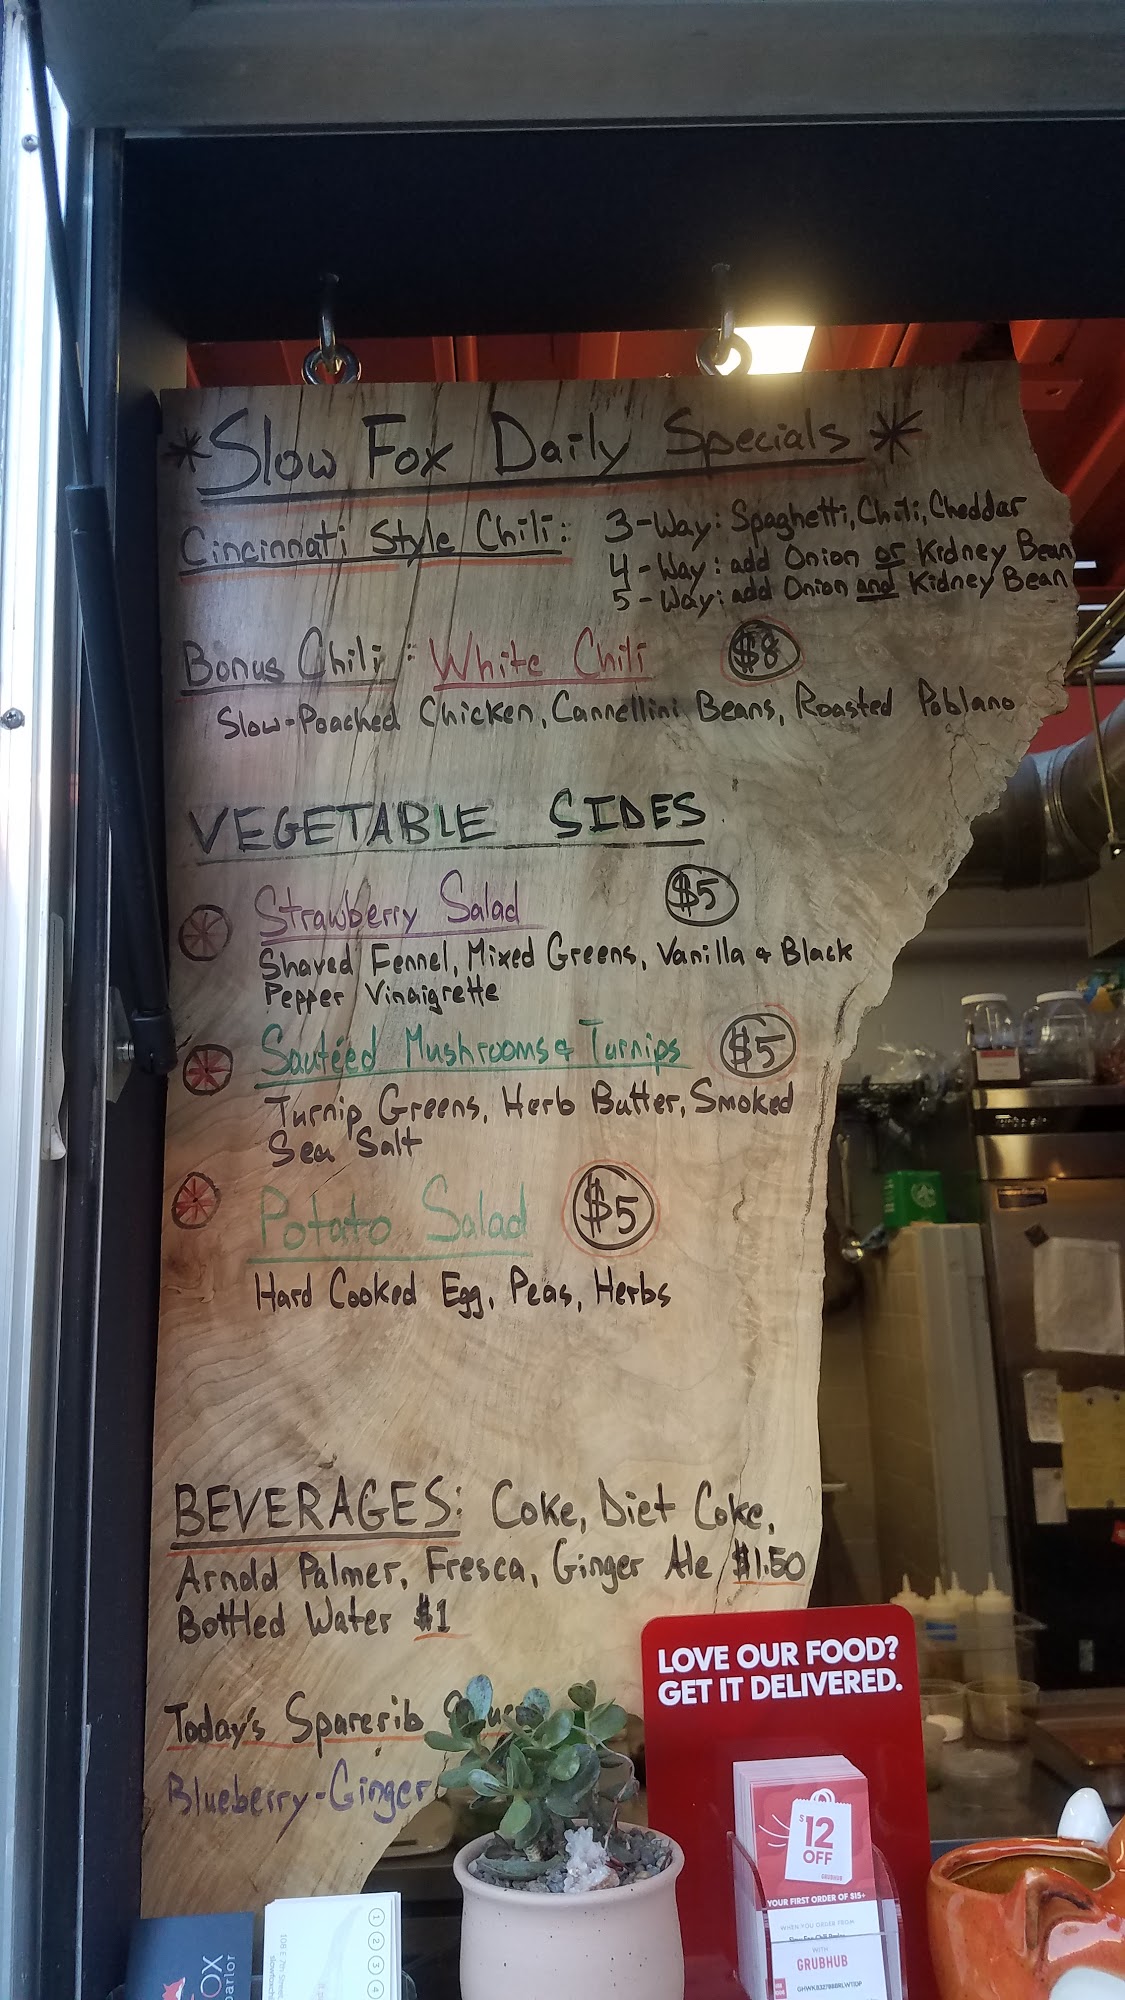 *Slow Fox Daily Specials*
Cincinnati Style Chili: 3-Way: Spaghetti, Chili, Cheddar
4-Way: add Onion or Kidney Bean
5-Way: add Onion and Kidney Bean
Bonus Chili: White Chili $8
Slow-Poached Chicken, Cannellini Beans, Roasted Poblano
VEGETABLE SIDES
Strawberry Salad $5
Shaved Fennel, Mixed Greens, Vanilla & Black
Pepper Vinaigrette
Sautéed Mushrooms & Turnips $5
Turnip Greens, Herb Butter, Smoked
Sea Salt
Potato Salad $5
Hard Cooked Egg, Peas, Herbs
BEVERAGES: Coke, Diet Coke,
Arnold Palmer, Fresca, Ginger Ale $1.50
Bottled Water $1
Today's Sparerib
Blueberry-Ginger
LOVE OUR FOOD?
GET IT DELIVERED.
$12
OFF
GRUBHUB
YOUR FIRST ORDER OF $15+
WHEN YOU ORDER FROM
WITH
GRUBHUB
106 E. 7th Street
1
2
3
4